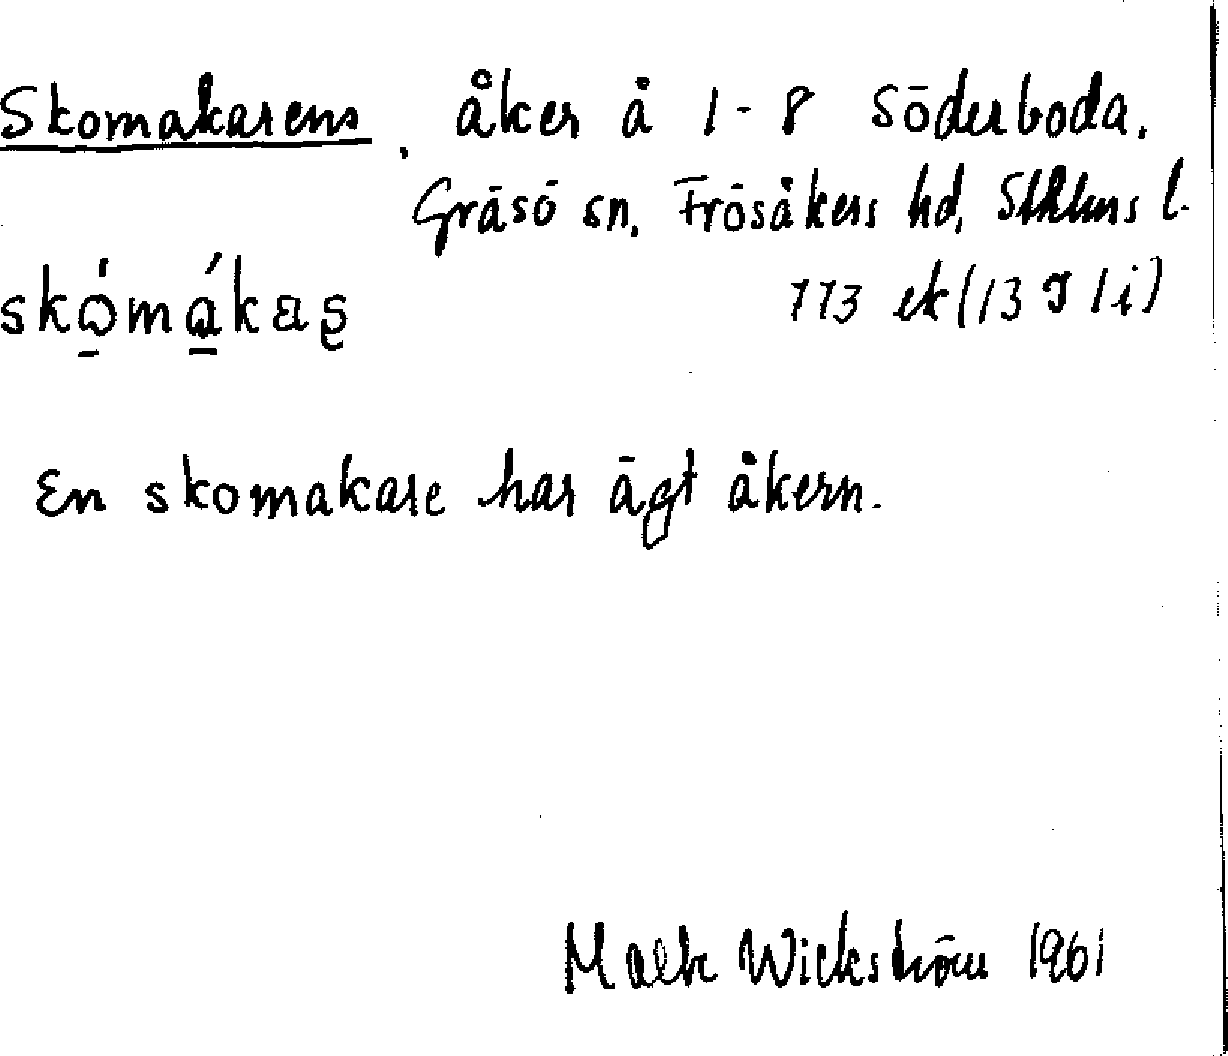 Skomakarens, åker å 1-8 Söderboda,
Gräsö sn, Frösåkers hd, Sthlms l.
skó̱má̱kas̢
113 ek (13 I 1 i)
En skomakare har ägt åkern.
Wickström 1961